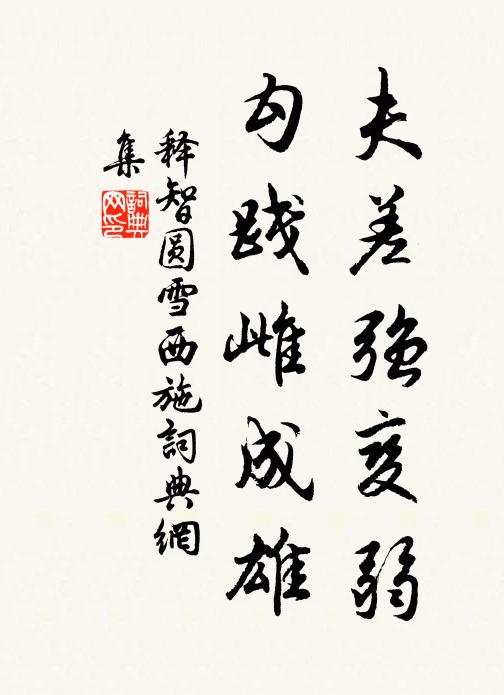 夫差強变弱
勾践雌成雄
释智圆雪西施詞典網
集
詞典网印